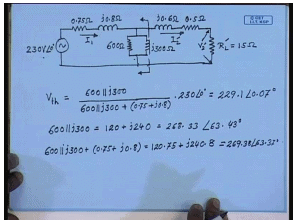 0.75Ω j0.8Ω j0.6Ω 0.5Ω
I₁ I₂'
230∠0° 600Ω j300Ω V₂' R_L' = 15Ω
V_th = 600||j300 / 600||j300 + (0.75+j0.8) · 230∠0° = 229.1∠0.07°
600||j300 = 120 + j240 = 268.33 ∠63.43°
600||j300 + (0.75+j0.8) = 120.75 + j240.8 = 269.38∠63.35°